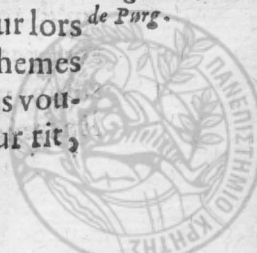 ur lors de Purg.
hemes
s vou-
ur rit,
ΠΑΝΕΠΙΣΤΗΜΙΟ ΚΡΗΤΗΣ